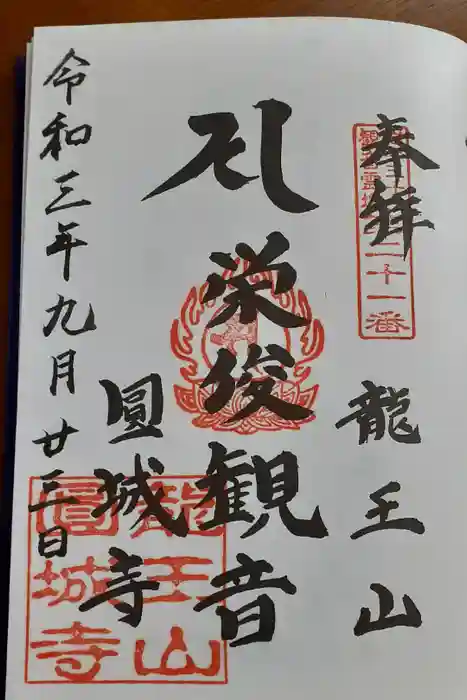 奉拝
龍王山
栄俊観音
圓城寺
令和三年九月廿三日
二十一番
龍王山
圓城寺